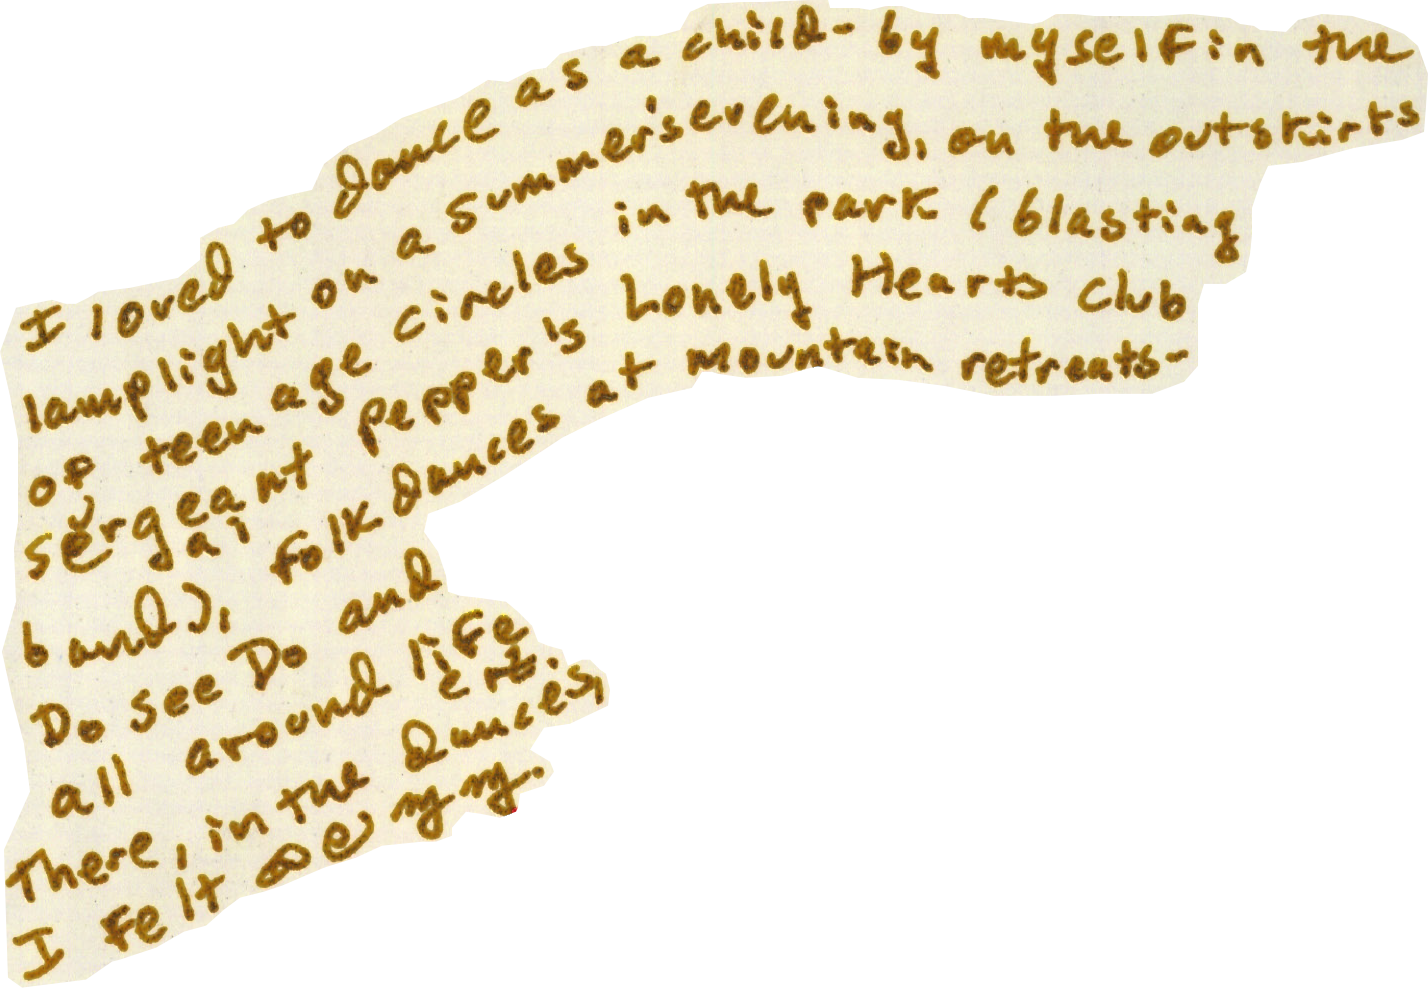 I loved to dance as a child- by myself in the
lamplight on a summer's evening, on the outskirts
of teen age circles in the park (blasting
sergeant pepper's Lonely Hearts club
band), folk dances at mountain retreats-
Do see Do and
all around life
there, in the dances,
I felt